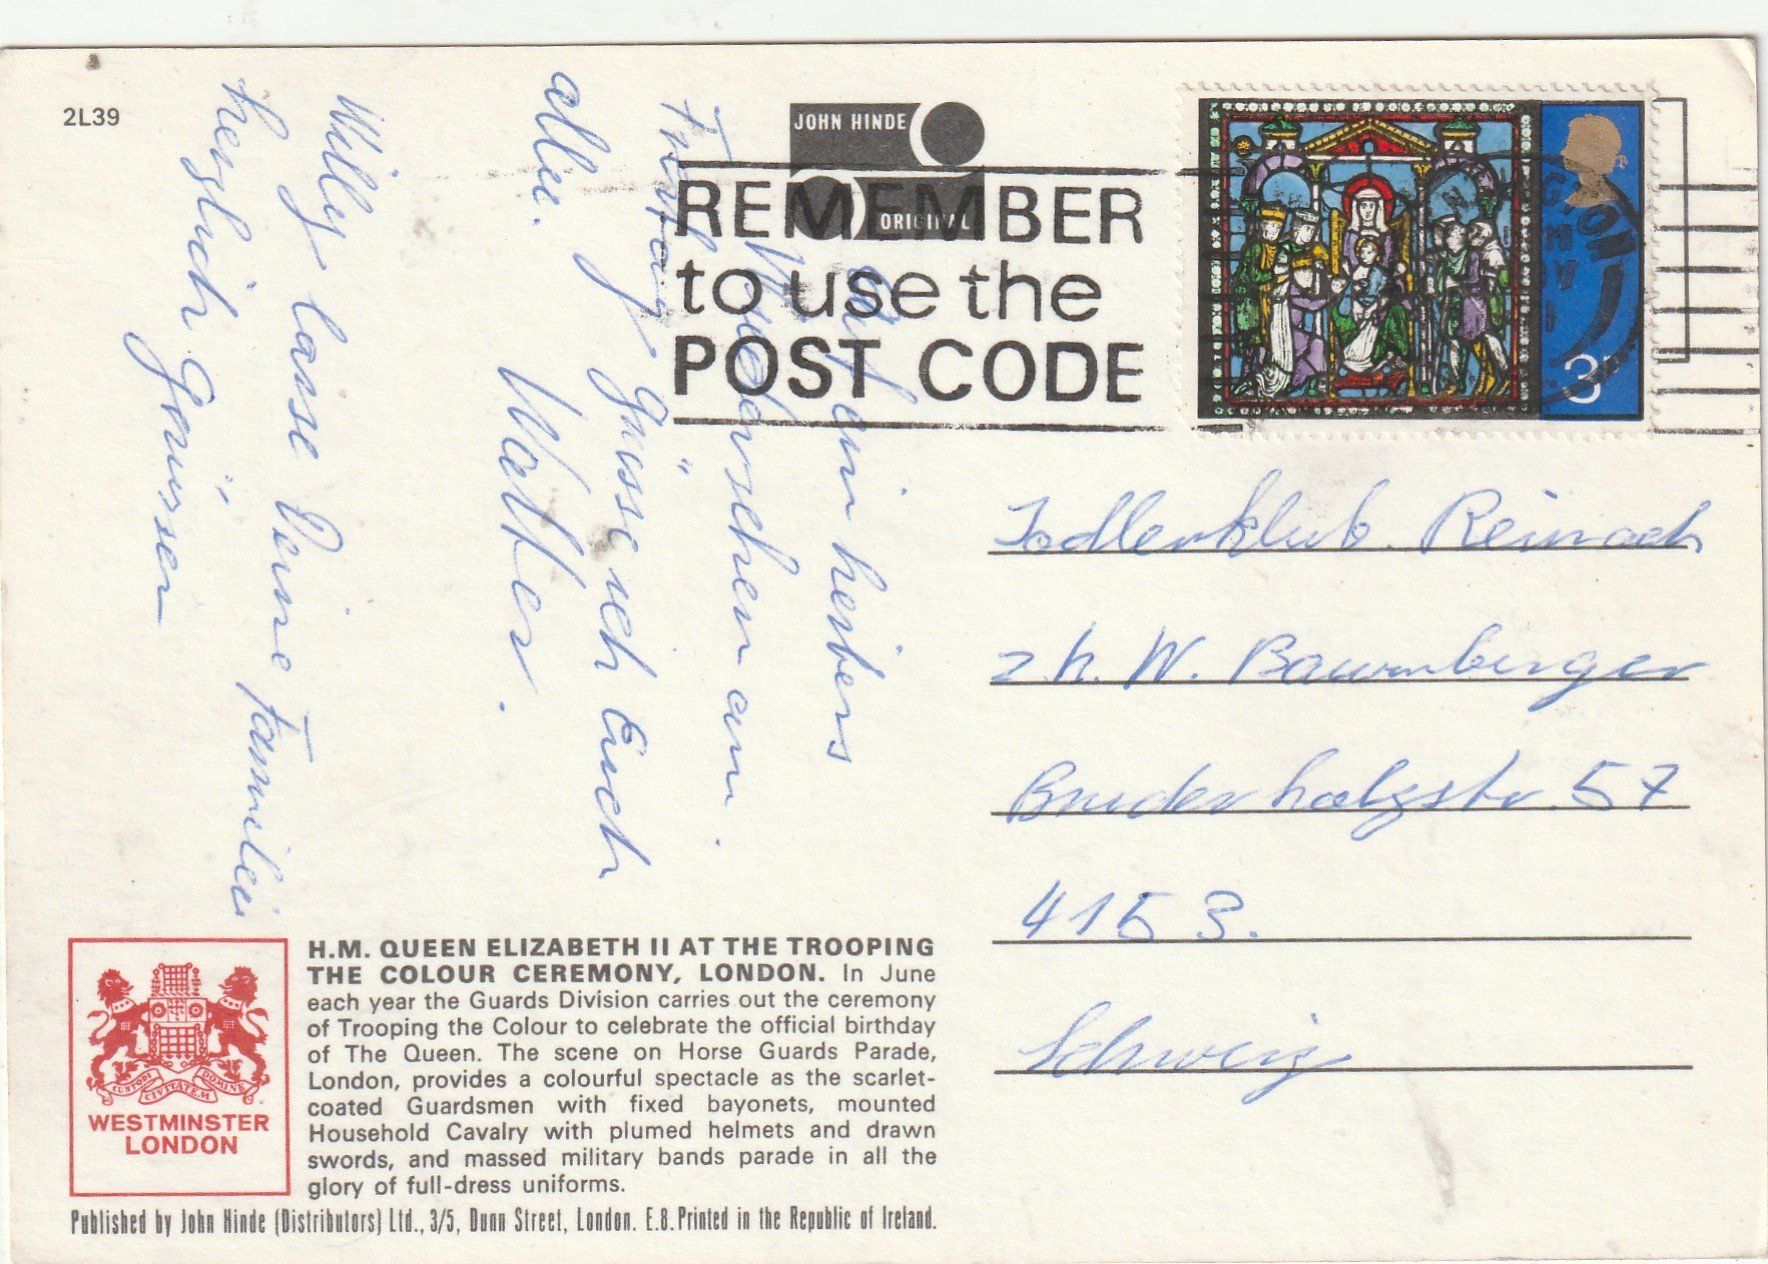 2L39
JOHN HINDE
ORIGINAL
REMEMBER
to use the
POST CODE
3
Auf ein heiteres
Wiedersehen am
Freitag
grüsse ich Euch
alle.
Walter.
Willy lasse Deine Familie
herzlich Grüssen
Jodlerklub. Reinach
z.h. W. Baumberger
Bruderholzstr. 57
4153.
Schweiz
H.M. QUEEN ELIZABETH II AT THE TROOPING
THE COLOUR CEREMONY, LONDON. In June
each year the Guards Division carries out the ceremony
of Trooping the Colour to celebrate the official birthday
of The Queen. The scene on Horse Guards Parade,
London, provides a colourful spectacle as the scarlet-
coated Guardsmen with fixed bayonets, mounted
Household Cavalry with plumed helmets and drawn
swords, and massed military bands parade in all the
glory of full-dress uniforms.
CUSTODI CIVITATEM DOMINE
WESTMINSTER
LONDON
Published by John Hinde (Distributors) Ltd., 3/5, Dunn Street, London. E.8. Printed in the Republic of Ireland.